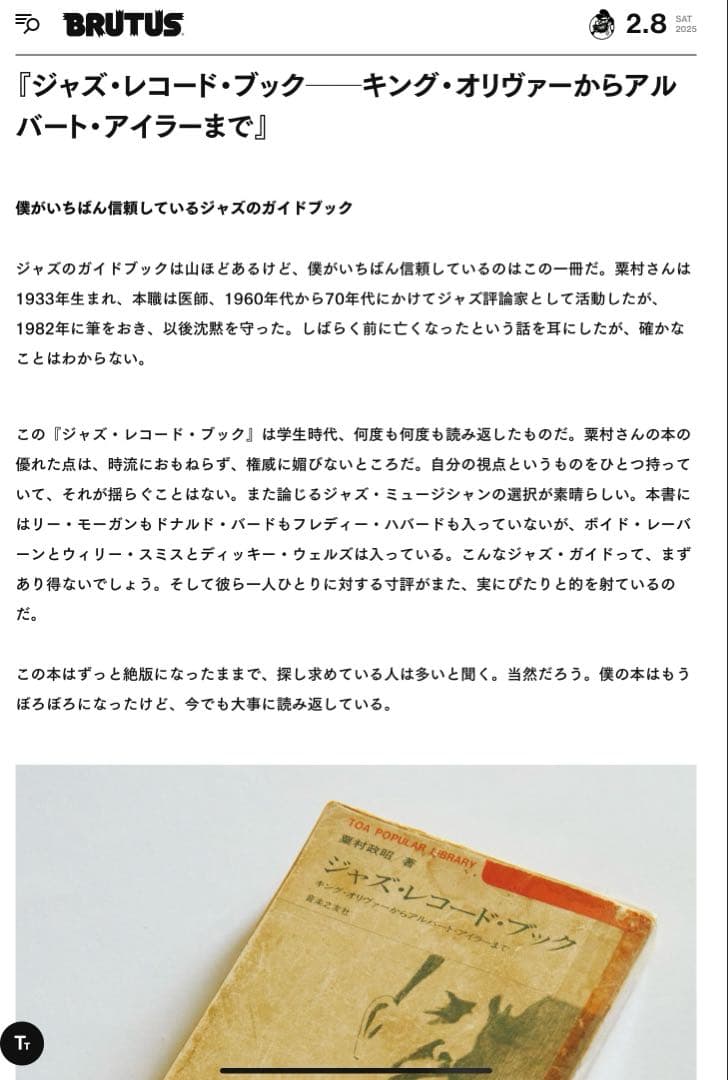 BRUTUS
2.8 SAT 2025
『ジャズ・レコード・ブック──キング・オリヴァーからアル
バート・アイラーまで』
僕がいちばん信頼しているジャズのガイドブック
ジャズのガイドブックは山ほどあるけど、僕がいちばん信頼しているのはこの一冊だ。粟村さんは
1933年生まれ、本職は医師、1960年代から70年代にかけてジャズ評論家として活動したが、
1982年に筆をおき、以後沈黙を守った。しばらく前に亡くなったという話を耳にしたが、確かな
ことはわからない。
この『ジャズ・レコード・ブック』は学生時代、何度も何度も読み返したものだ。粟村さんの本の
優れた点は、時流におもねらず、権威に媚びないところだ。自分の視点というものをひとつ持って
いて、それが揺らぐことはない。また論じるジャズ・ミュージシャンの選択が素晴らしい。本書に
はリー・モーガンもドナルド・バードもフレディー・ハバードも入っていないが、ボイド・レーバ
ーンとウィリー・スミスとディッキー・ウェルズは入っている。こんなジャズ・ガイドって、まず
あり得ないでしょう。そして彼ら一人ひとりに対する寸評がまた、実にぴたりと的を射ているの
だ。
この本はずっと絶版になったままで、探し求めている人は多いと聞く。当然だろう。僕の本はもう
ぼろぼろになったけど、今でも大事に読み返している。
TOA POPULAR LIBRARY
粟村政昭 著
ジャズ・レコード・ブック
キング・オリヴァーからアルバート・アイラーまで
音楽之友社
TT